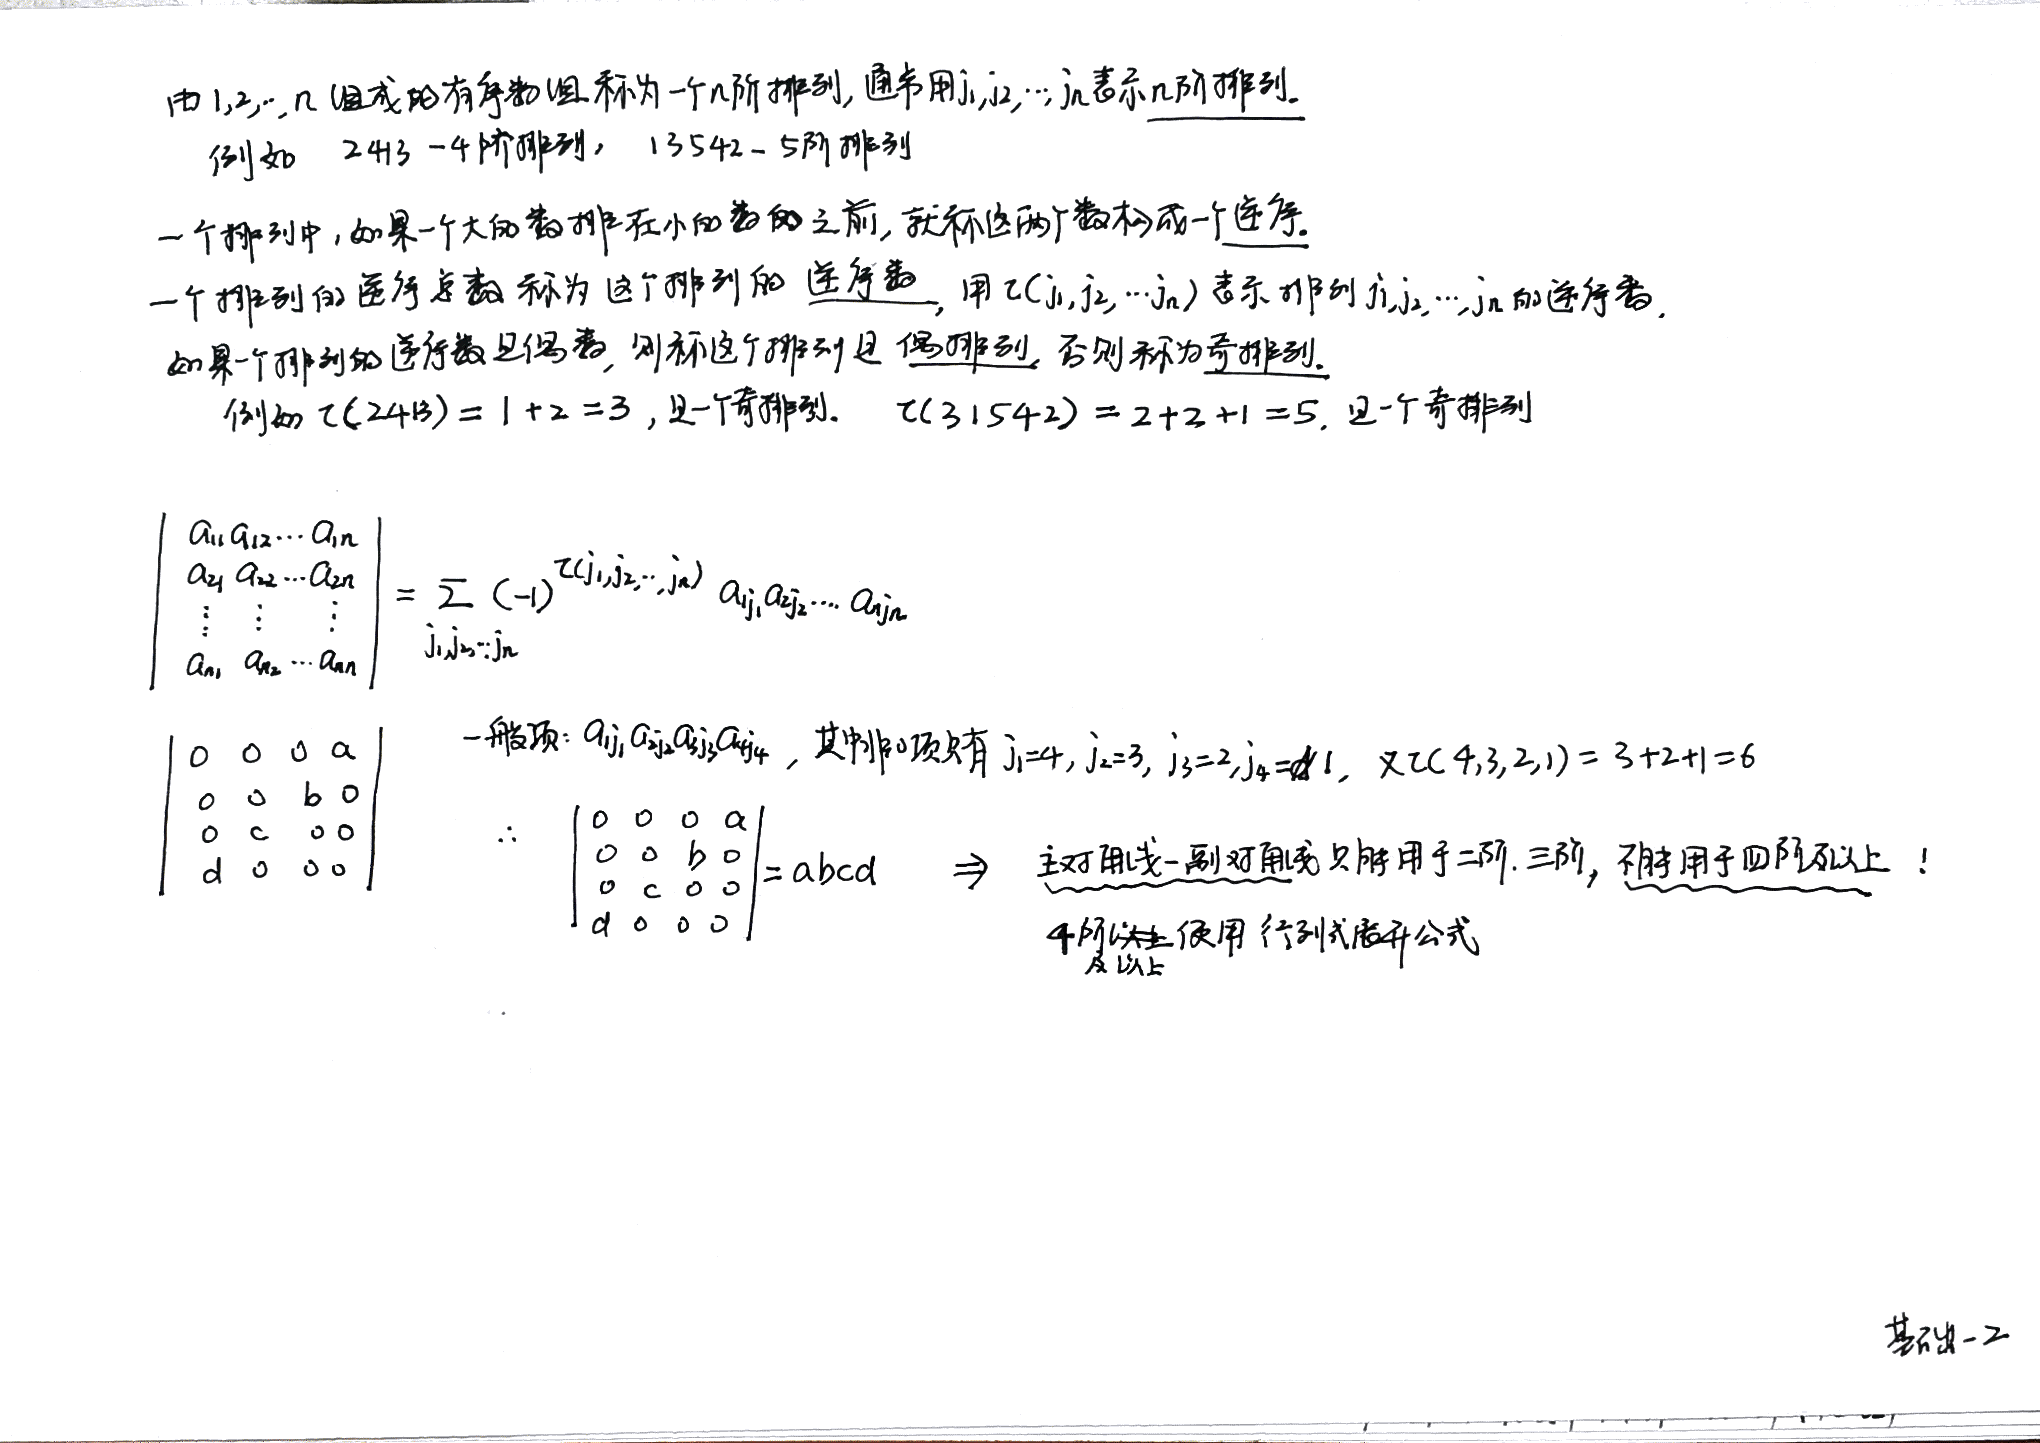 由1,2,…,n组成的有序数组称为一个n阶排列,通常用j₁,j₂,…,jₙ表示n阶排列.
例如 2413-4阶排列, 13542-5阶排列
一个排列中,如果一个大的数排在小的数的之前,就称这两个数构成一个逆序.
一个排列的逆序总数称为这个排列的逆序数,用τ(j₁,j₂,…jₙ)表示排列j₁,j₂,…,jₙ的逆序数.
如果一个排列的逆序数是偶数,则称这个排列是偶排列,否则称为奇排列.
例如τ(2413)=1+2=3,是一个奇排列. τ(31542)=2+2+1=5,是一个奇排列
| a₁₁ a₁₂ … a₁ₙ |
| a₂₁ a₂₂ … a₂ₙ |
| ⋮ ⋮ ⋮ | = Σ (-1)^τ(j₁,j₂,…,jₙ) a₁j₁ a₂j₂ … aₙjₙ
j₁,j₂,…jₙ
| aₙ₁ aₙ₂ … aₙₙ |
| 0 0 0 a |
| 0 0 b 0 |
| 0 c 0 0 |
| d 0 0 0 |
一般项: a₁j₁ a₂j₂ a₃j₃ a₄j₄, 其中非0项只有 j₁=4, j₂=3, j₃=2, j₄=1, 又τ(4,3,2,1)=3+2+1=6
∴ | 0 0 0 a |
| 0 0 b 0 |
| 0 c 0 0 | =abcd ⇒ 主对角线-副对角线只能用于二阶.三阶,不能用于四阶及以上!
| d 0 0 0 |
4阶及以上使用行列式展开公式
基础-2